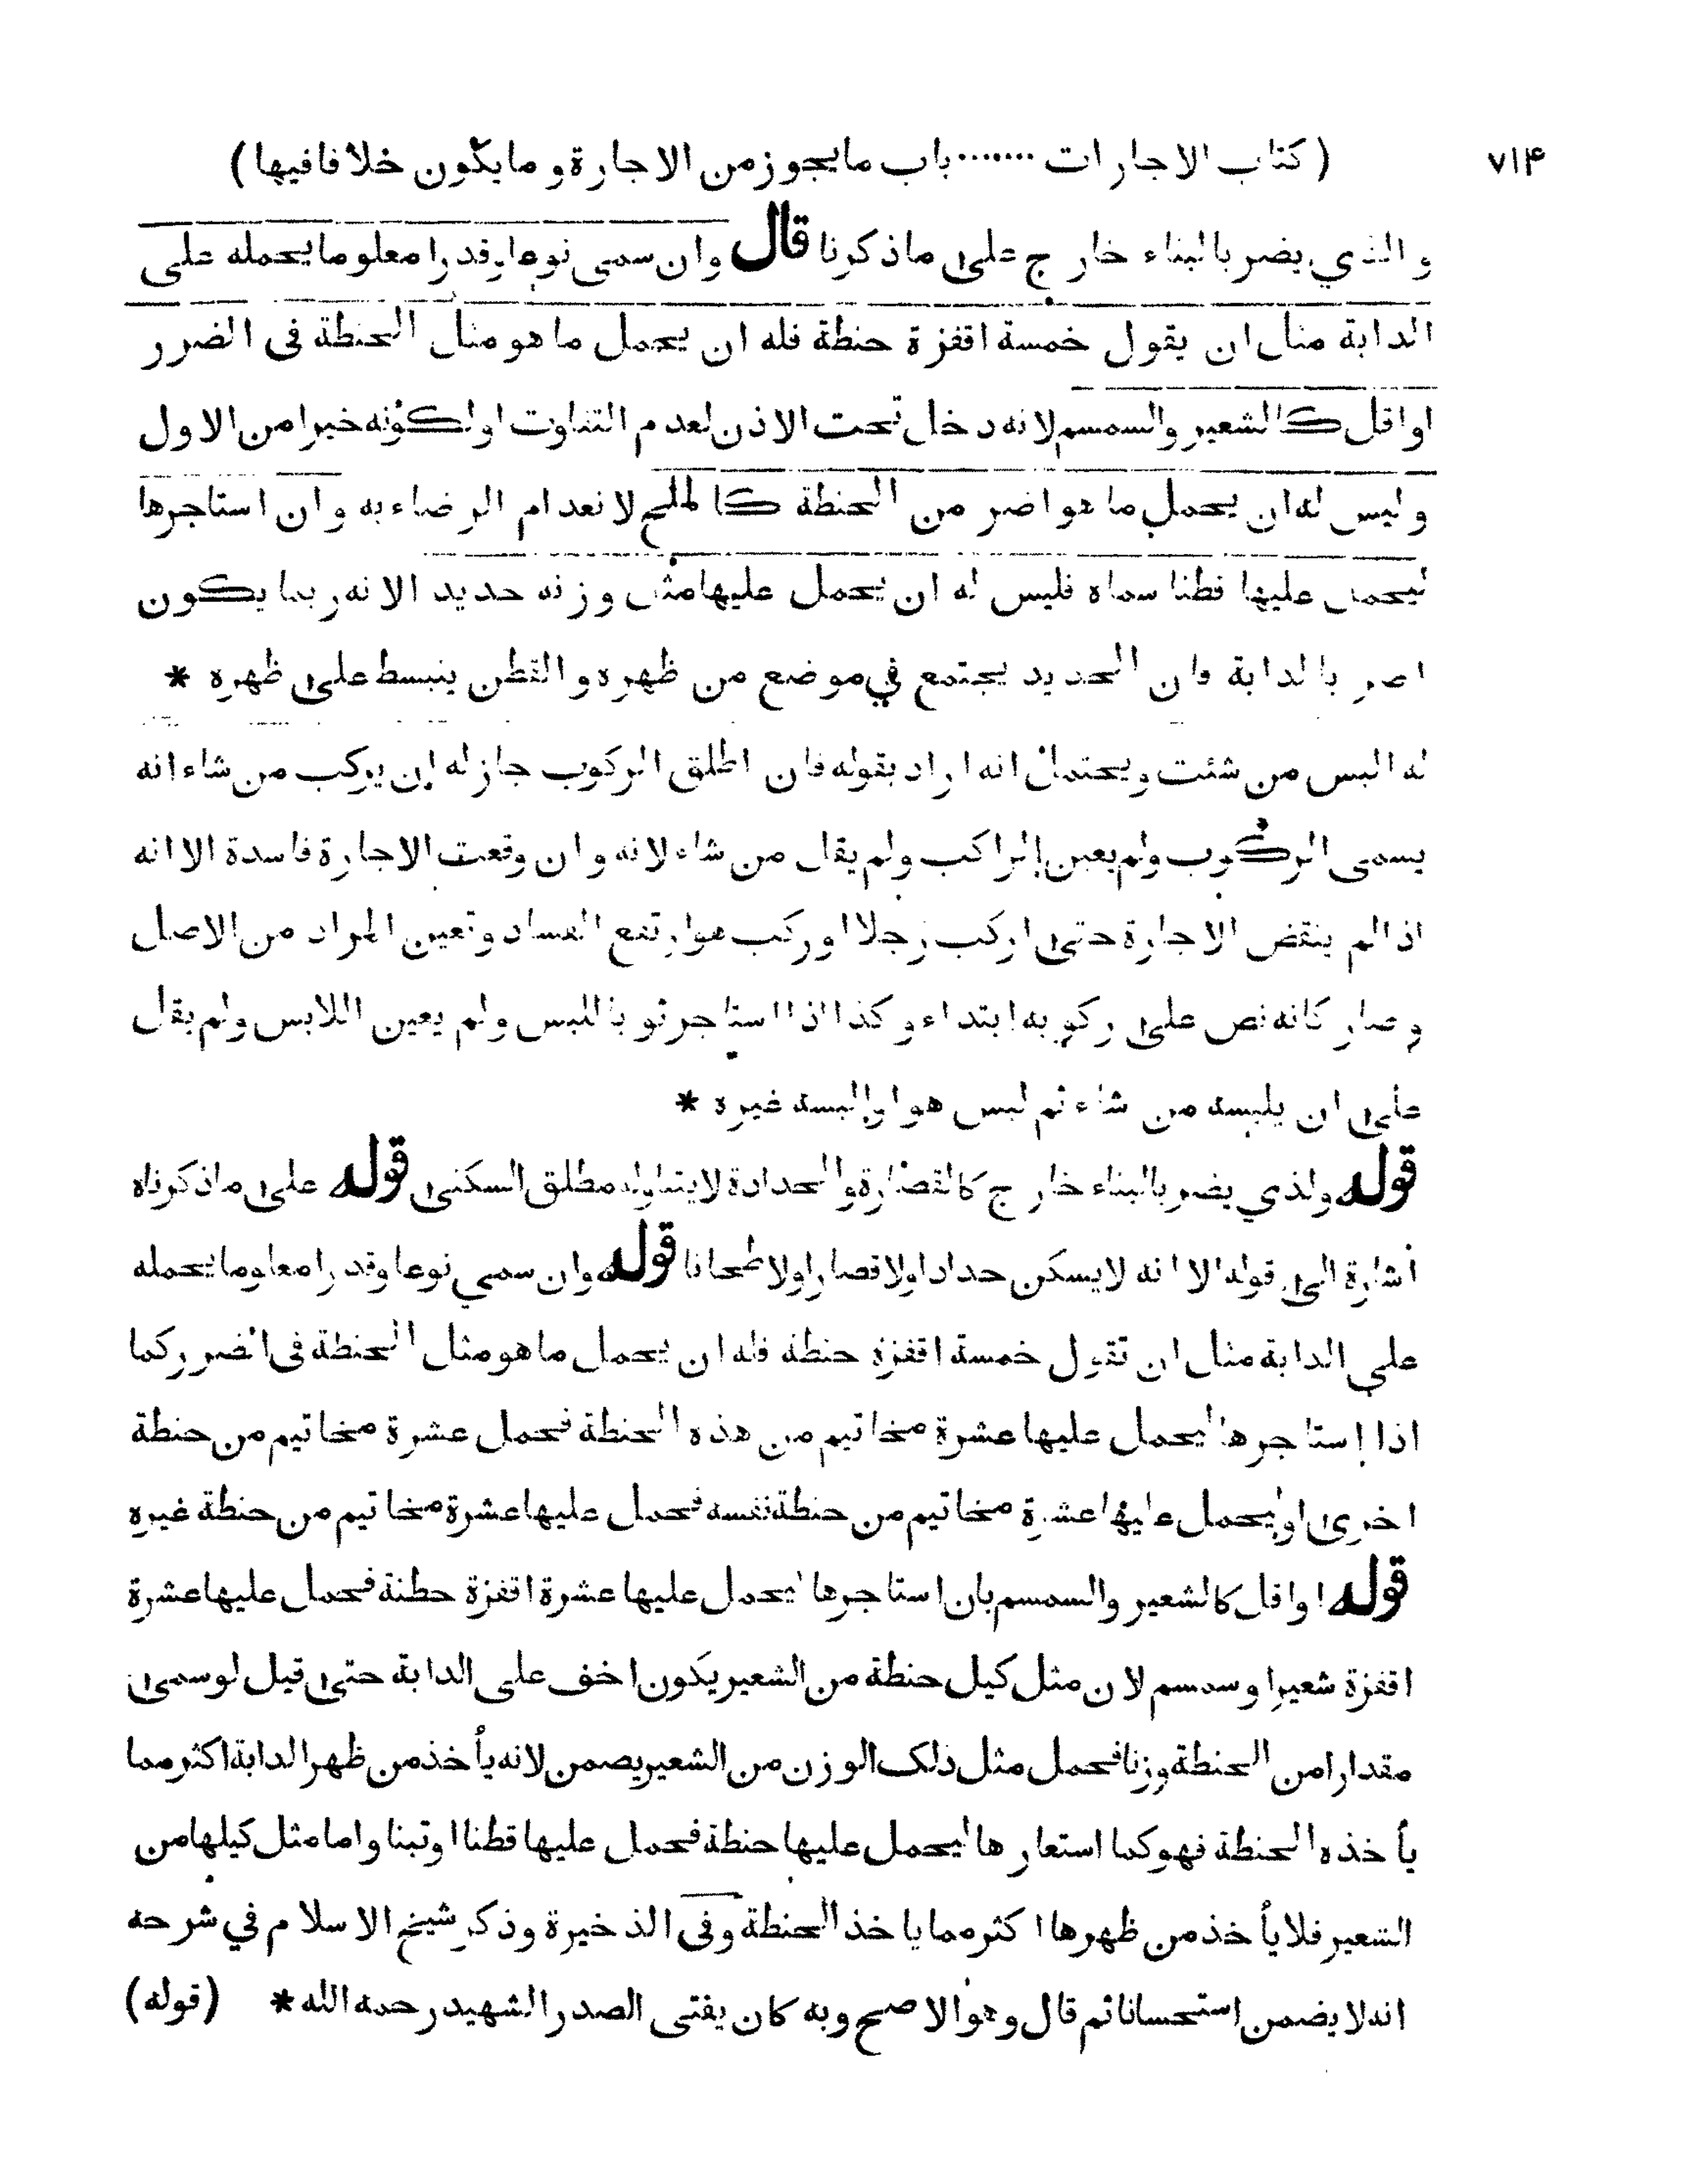 ٧١۴ ( كتاب الاجارات ........ باب مايجوز من الاجارة و مايكون خلافا فيها )
والذي يضر بالبناء خارج على ماذكرنا قال وان سمى نوعا وقدرا معلوما يحمله على
الدابة مثل ان يقول خمسة اقفزة حنطة فله ان يحمل ما هو مثل الحنطة فى الضرر
اواقل كالشعير والسمسم لانه دخل تحت الاذن لعدم التفاوت اولكونه خيرا من الاول
وليس له ان يحمل ما هو اضر من الحنطة كالملح لانعدام الرضاء به وان استاجرها
ليحمل عليها قطنا سماه فليس له ان يحمل عليها مثل وزنه حديد الانه ربما يكون
اضر بالدابة فان الحديد يجتمع في موضع من ظهره والقطن ينبسط على ظهره *
له البس من شئت ويحتمل انه اراد بقوله فان اطلق الركوب جازله ان يركب من شاء انه
يسمى الركوب ولم يعين الراكب ولم يقل من شاء لانه وان وقعت الاجارة فاسدة الا انه
اذالم ينقض الاجارة حتى اركب رجلا اوركب هو ارتفع الفساد وتعين المراد من الاصل
وصار كانه نص على ركوبه ابتداء وكذا اذا استاجر ثوبا للبس ولم يعين اللابس ولم يقل
على ان يلبسه من شاء ثم لبس هو او البسه غيره *
قوله والذي يضر بالبناء خارج كالقصارة والحدادة لايتناوله مطلق السكنى قوله على ماذكرناه
اشارة الى قوله الا انه لايسكن حدادا ولا قصارا ولا طحانا قوله وان سمي نوعا وقدرا معلوما يحمله
علي الدابة مثل ان تقول خمسة اقفزة حنطة فله ان يحمل ما هو مثل الحنطة فى الضرر كما
اذا استاجرها ليحمل عليها عشرة مخاتيم من هذه الحنطة فحمل عشرة مخاتيم من حنطة
اخرى اوليحمل عليها عشرة مخاتيم من حنطة نفسه فحمل عليها عشرة مخاتيم من حنطة غيره
قوله اواقل كالشعير والسمسم بان استاجرها ليحمل عليها عشرة اقفزة حطنة فحمل عليها عشرة
اقفزة شعيرا وسمسم لان مثل كيل حنطة من الشعير يكون اخف على الدابة حتى قيل لوسمى
مقدارا من الحنطة وزنا فحمل مثل ذلك الوزن من الشعير يضمن لانه يأخذ من ظهر الدابة اكثر مما
يأخذه الحنطة فهو كما استعارها ليحمل عليها حنطة فحمل عليها قطنا اوتبنا واما مثل كيلها من
الشعير فلا يأخذ من ظهرها اكثر مما ياخذ الحنطة وفى الذخيرة وذكر شيخ الاسلام في شرحه
انه لا يضمن استحسانا ثم قال وهو الاصح وبه كان يفتى الصدر الشهيد رحمه الله * (قوله)